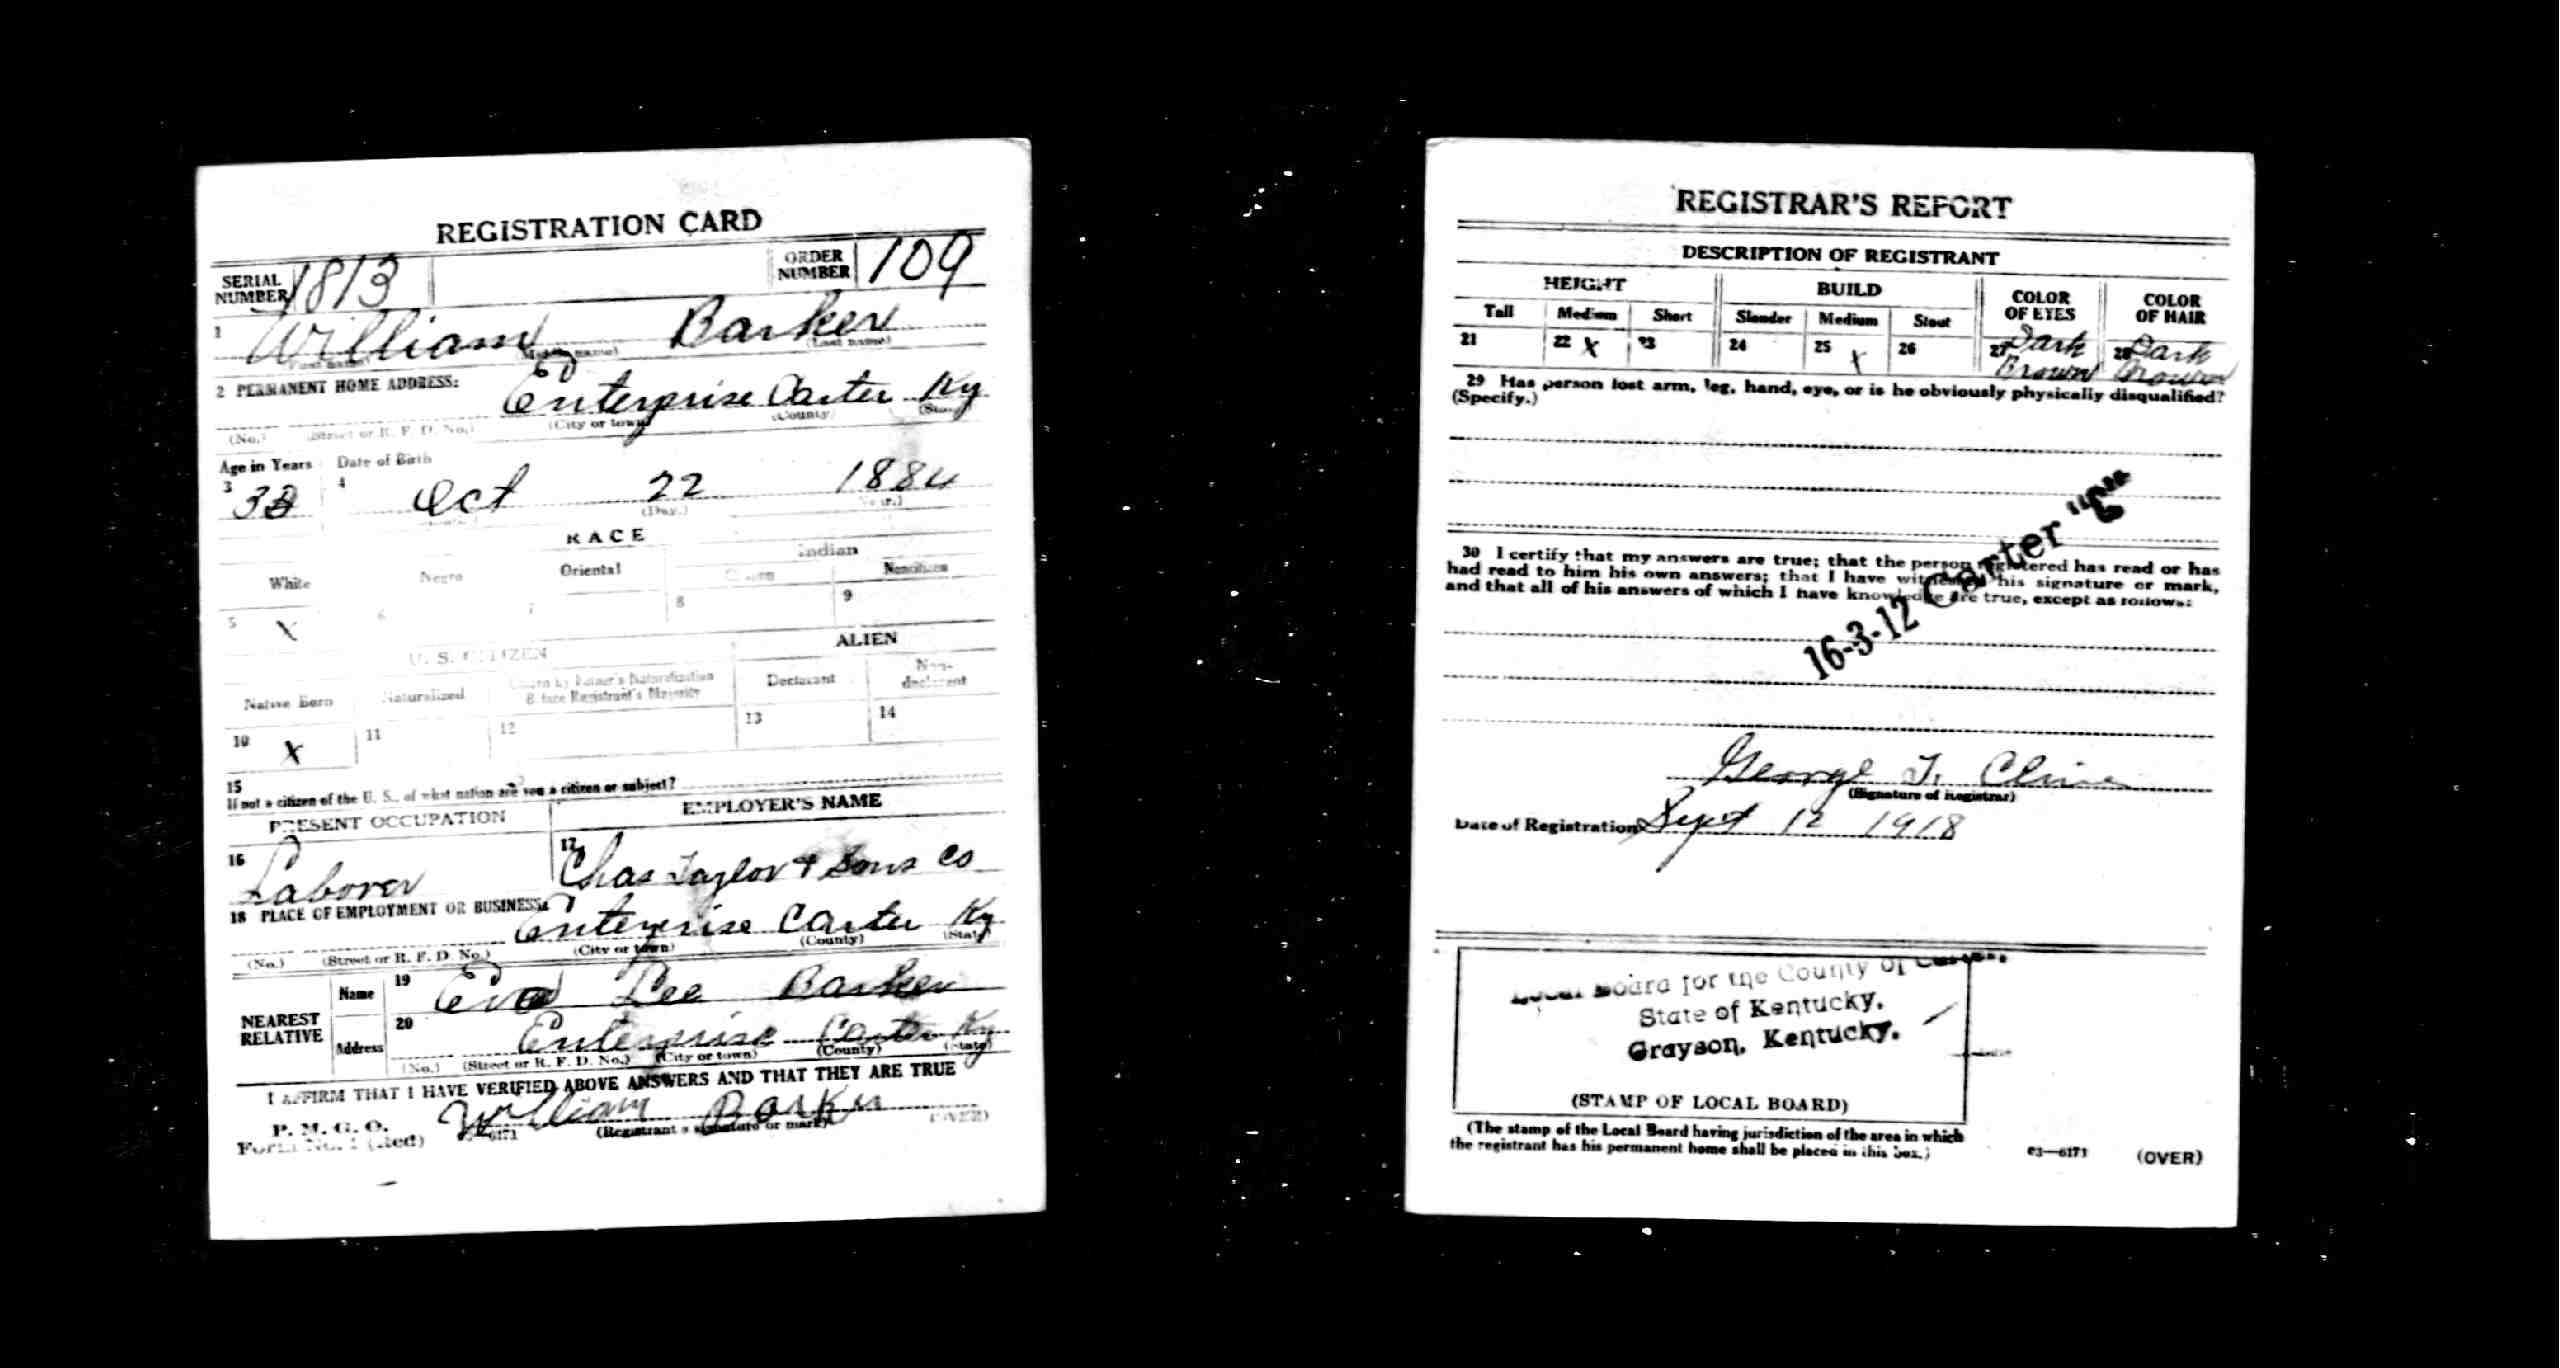 REGISTRATION CARD
SERIAL NUMBER 1813 ORDER NUMBER 109
1 William Barker
(Middle name) (Last name)
2 PERMANENT HOME ADDRESS:
Enterprise Carter Ky
(No.) (Street or R. F. D. No.) (City or town) (County)
Age in Years Date of Birth
3 4 Oct 22 1884
(Day.)
RACE
White Negro Oriental Indian
Noncitizen
5 X 6 7 8 9
U. S. CITIZEN ALIEN
Native Born Naturalized Declarant Non-declarant
10 X 11 12 13 14
15
If not a citizen of the U. S., of what nation are you a citizen or subject?
PRESENT OCCUPATION EMPLOYER'S NAME
16 Laborer 17 Chas Taylor & Sons Co
18 PLACE OF EMPLOYMENT OR BUSINESS:
Enterprise Carter Ky.
(No.) (Street or R. F. D. No.) (City or town) (County) (State)
NEAREST RELATIVE
Name 19 Lee Barker
Address 20 Enterprise Carter Ky
(No.) (Street or R. F. D. No.) (City or town) (County) (State)
I AFFIRM THAT I HAVE VERIFIED ABOVE ANSWERS AND THAT THEY ARE TRUE
P. M. G. O.
Form No. 1 (Red) William Barker
(Registrant's signature or mark) (OVER)
REGISTRAR'S REPORT
DESCRIPTION OF REGISTRANT
HEIGHT BUILD COLOR OF EYES COLOR OF HAIR
Tall Medium Short Slender Medium Stout
21 22 X 23 24 25 X 26 27 Dark Brown 28 Dark Brown
29 Has person lost arm, leg, hand, eye, or is he obviously physically disqualified?
(Specify.)
30 I certify that my answers are true; that the person registered has read or has
had read to him his own answers; that I have witnessed his signature or mark,
and that all of his answers of which I have knowledge are true, except as follows:
16-3-12 Carter "C"
George T. Cline
(Signature of Registrar)
Date of Registration Sept 12 1918
Local Board for the County of Carter,
State of Kentucky,
Grayson, Kentucky.
(STAMP OF LOCAL BOARD)
(The stamp of the Local Board having jurisdiction of the area in which
the registrant has his permanent home shall be placed in this box.)
03—6171 (OVER)